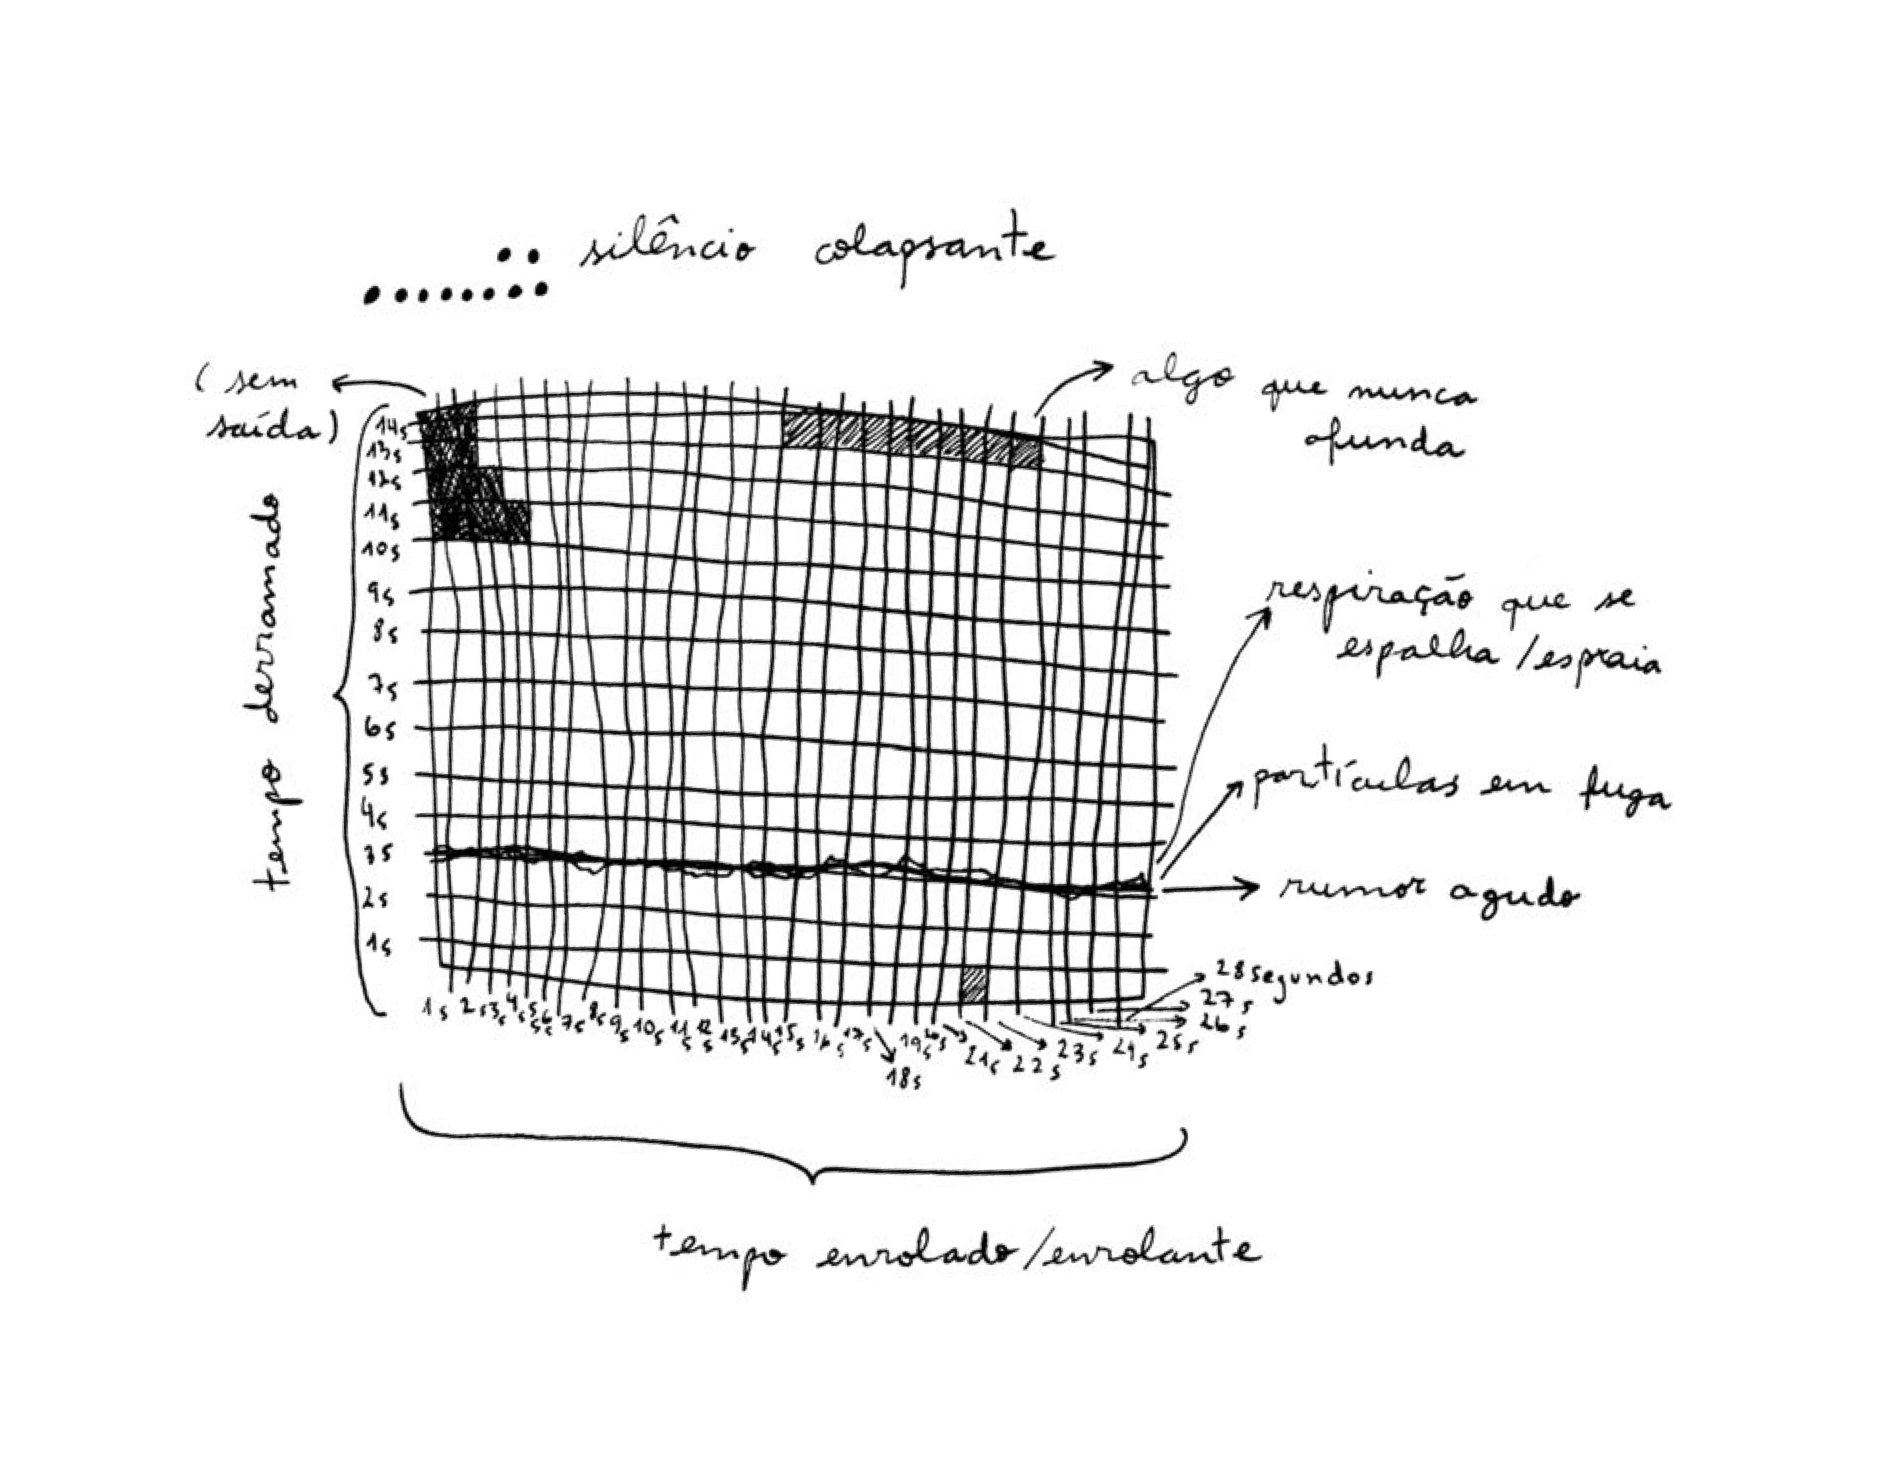 silêncio colapsante
(sem
saída)
algo que nunca
afunda
tempo derramado
14s
13s
12s
11s
10s
9s
8s
7s
6s
5s
4s
3s
2s
1s
respiração que se
espalha/espraia
partículas em fuga
rumor agudo
1s 2s 3s 4s 5s 6s 7s 8s 9s 10s 11s 12s 13s 14s 15s 16s 17s 18s 19s 20s 21s 22s 23s 24s 25s 26s 27s 28 segundos
tempo enrolado/enrolante